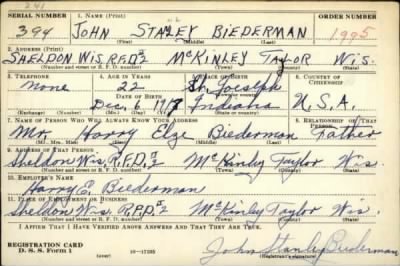 241
SERIAL NUMBER 1. NAME (Print) ORDER NUMBER
394 JOHN STANLEY BIEDERMAN 1995
(First) (Middle) (Last)
2. ADDRESS (Print)
SHELDON WIS. R.F.D. #2 McKINLEY TAYLOR WIS.
(Number and street or R. F. D. number) (Town) (County) (State)
3. TELEPHONE 4. AGE IN YEARS 5. PLACE OF BIRTH 6. COUNTRY OF CITIZENSHIP
None 22 St. Joseph
DATE OF BIRTH (Town or county)
Dec. 6 1917 Indiana U.S.A.
(Exchange) (Number) (Mo.) (Day) (Yr.) (State or country)
7. NAME OF PERSON WHO WILL ALWAYS KNOW YOUR ADDRESS 8. RELATIONSHIP OF THAT PERSON
Mr. Harry Elze Biederman Father
(Mr., Mrs., Miss) (First) (Middle) (Last)
9. ADDRESS OF THAT PERSON
Sheldon Wis. R.F.D. #2 McKinley Taylor Wis.
(Number and street or R. F. D. number) (Town) (County) (State)
10. EMPLOYER'S NAME
Harry E. Biederman
11. PLACE OF EMPLOYMENT OR BUSINESS
Sheldon Wis. R.F.D. #2 McKinley Taylor Wis.
(Number and street or R. F. D. number) (Town) (County) (State)
I AFFIRM THAT I HAVE VERIFIED ABOVE ANSWERS AND THAT THEY ARE TRUE.
REGISTRATION CARD
D. S. S. Form 1 (over) John Stanley Biederman
(Registrant's signature)